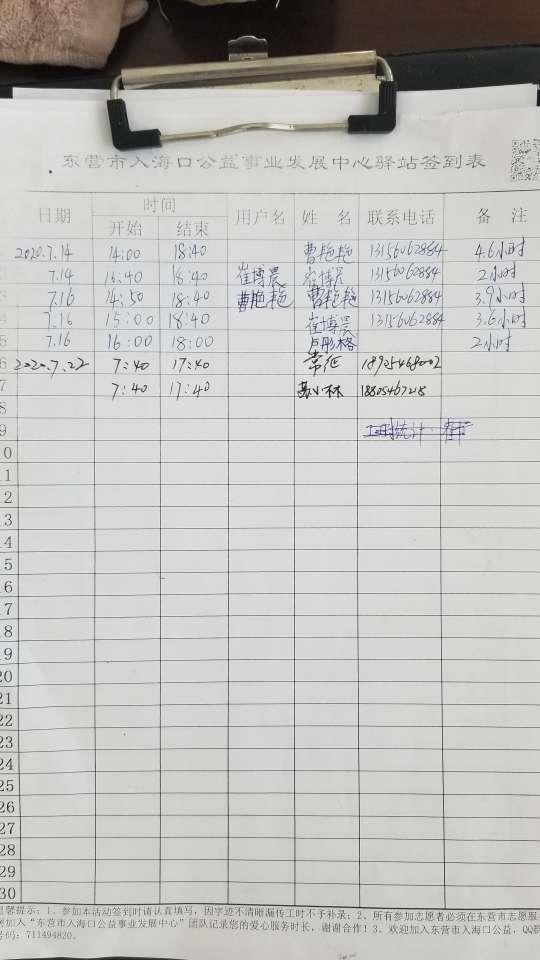 东营市入海口公益事业发展中心驿站签到表
日期 时间 用户名 姓 名 联系电话 备 注
开始 结束
2020.7.14 14:00 18:40 曹艳艳 13156062884 4.6小时
7.14 16:40 18:40 崔博晨 崔博晨 13156062884 2小时
3 7.16 14:50 18:40 曹艳艳 曹艳艳 13156062884 3.9小时
4 7.16 15:00 18:40 崔博晨 13156062884 3.6小时
5 7.16 16:00 18:00 卢彤格 2小时
6 2020.7.22 7:40 17:40 常征
7 7:40 17:40 苏小林
8
9 工时统计:
0
11
12
13
14
15
16
17
18
19
20
21
22
23
24
25
26
27
28
29
30
馨提示：1、参加本活动签到时请认真填写，因字迹不清晰漏传工时不予补录；2、所有参加志愿者必须在东营市志愿服
加入“东营市入海口公益事业发展中心”团队记录您的爱心服务时长，谢谢合作！3、欢迎加入东营市入海口公益，QQ群
号码：711494820。